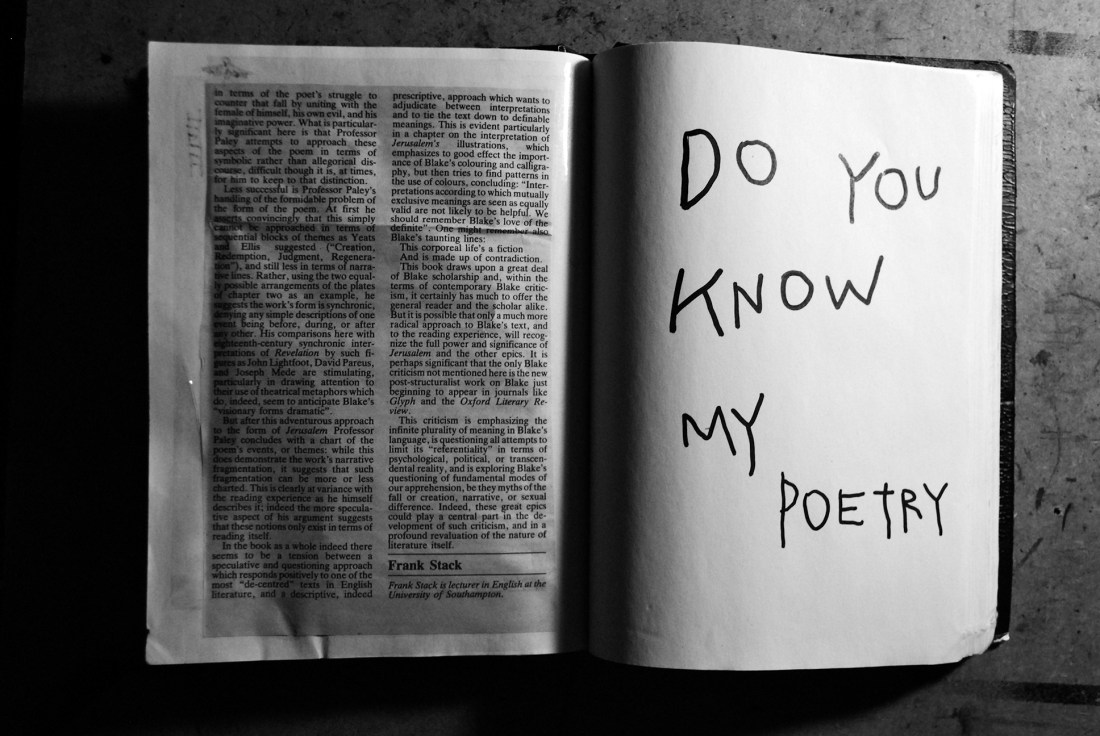 in terms of the poet's struggle to
counter that fall by uniting with the
female of himself, his own evil, and his
imaginative power. What is particular-
ly significant here is that Professor
Paley attempts to approach these
aspects of the poem in terms of
symbolic rather than allegorical dis-
course, difficult though it is, at times,
for him to keep to that distinction.
Less successful is Professor Paley's
handling of the formidable problem of
the form of the poem. At first he
asserts convincingly that this simply
cannot be approached in terms of
sequential blocks of themes as Yeats
and Ellis suggested ("Creation,
Redemption, Judgment, Regenera-
tion"), and still less in terms of narra-
tive lines. Rather, using the two equal-
ly possible arrangements of the plates
of chapter two as an example, he
suggests the work's form is synchronic,
denying any simple descriptions of one
event being before, during, or after
any other. His comparisons here with
eighteenth-century synchronic inter-
pretations of Revelation by such fi-
gures as John Lightfoot, David Pareus,
and Joseph Mede are stimulating,
particularly in drawing attention to
their use of theatrical metaphors which
do, indeed, seem to anticipate Blake's
"visionary forms dramatic".
But after this adventurous approach
to the form of Jerusalem Professor
Paley concludes with a chart of the
poem's events, or themes: while this
does demonstrate the work's narrative
fragmentation, it suggests that such
fragmentation can be more or less
charted. This is clearly at variance with
the reading experience as he himself
describes it; indeed the more specula-
tive aspect of his argument suggests
that these notions only exist in terms of
reading itself.
In the book as a whole indeed there
seems to be a tension between a
speculative and questioning approach
which responds positively to one of the
most "de-centred" texts in English
literature, and a descriptive, indeed
prescriptive, approach which wants to
adjudicate between interpretations
and to tie the text down to definable
meanings. This is evident particularly
in a chapter on the interpretation of
Jerusalem's illustrations, which
emphasizes to good effect the import-
ance of Blake's colouring and calligra-
phy, but then tries to find patterns in
the use of colours, concluding: "Inter-
pretations according to which mutually
exclusive meanings are seen as equally
valid are not likely to be helpful. We
should remember Blake's love of the
definite". One might remember also
Blake's taunting lines:
This corporeal life's a fiction
And is made up of contradiction.
This book draws upon a great deal
of Blake scholarship and, within the
terms of contemporary Blake critic-
ism, it certainly has much to offer the
general reader and the scholar alike.
But it is possible that only a much more
radical approach to Blake's text, and
to the reading experience, will recog-
nize the full power and significance of
Jerusalem and the other epics. It is
perhaps significant that the only Blake
criticism not mentioned here is the new
post-structuralist work on Blake just
beginning to appear in journals like
Glyph and the Oxford Literary Re-
view.
This criticism is emphasizing the
infinite plurality of meaning in Blake's
language, is questioning all attempts to
limit its "referentiality" in terms of
psychological, political, or transcen-
dental reality, and is exploring Blake's
questioning of fundamental modes of
our apprehension, be they myths of the
fall or creation, narrative, or sexual
difference. Indeed, these great epics
could play a central part in the de-
velopment of such criticism, and in a
profound revaluation of the nature of
literature itself.
Frank Stack
Frank Stack is lecturer in English at the
University of Southampton.
DO YOU
KNOW
MY
POETRY